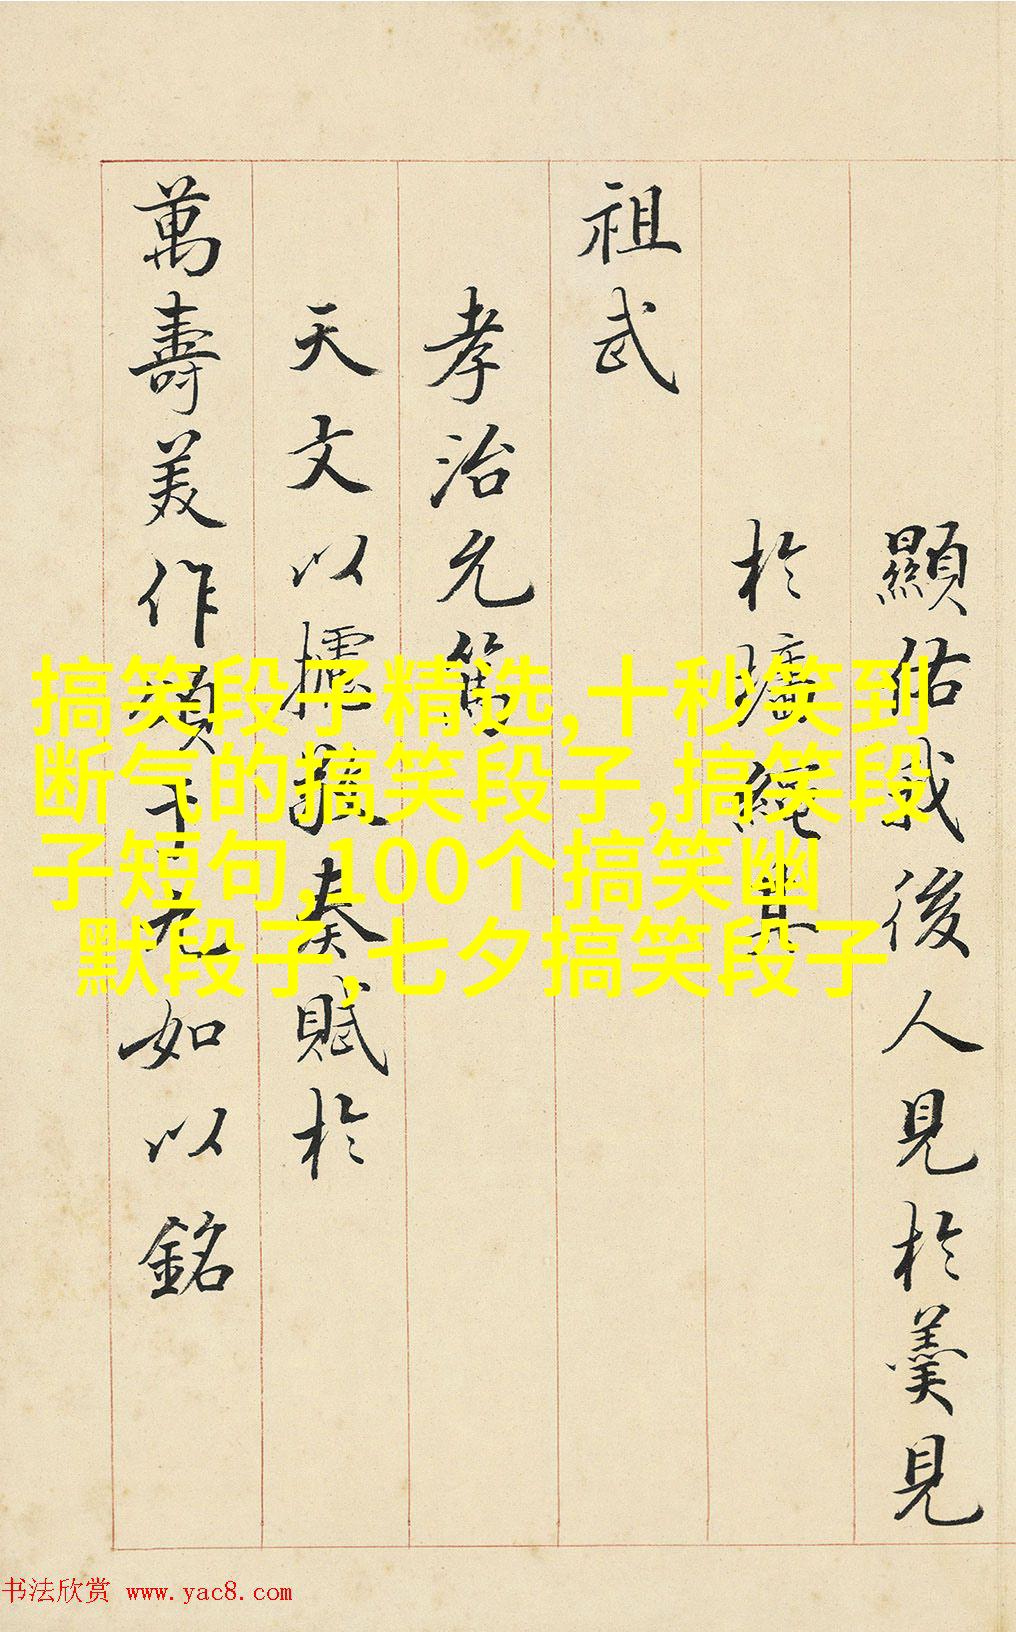 顯佑我後人見於羹見
於墻繩其
祖武
孝治允篤
天文以攄奏賦於
萬壽美作頌九如以銘
搞笑段子精选,十秒笑到
断气的搞笑段子,搞笑段
子短句,100个搞笑幽
默段子,七夕搞笑段子
书法欣赏 www.yac8.com